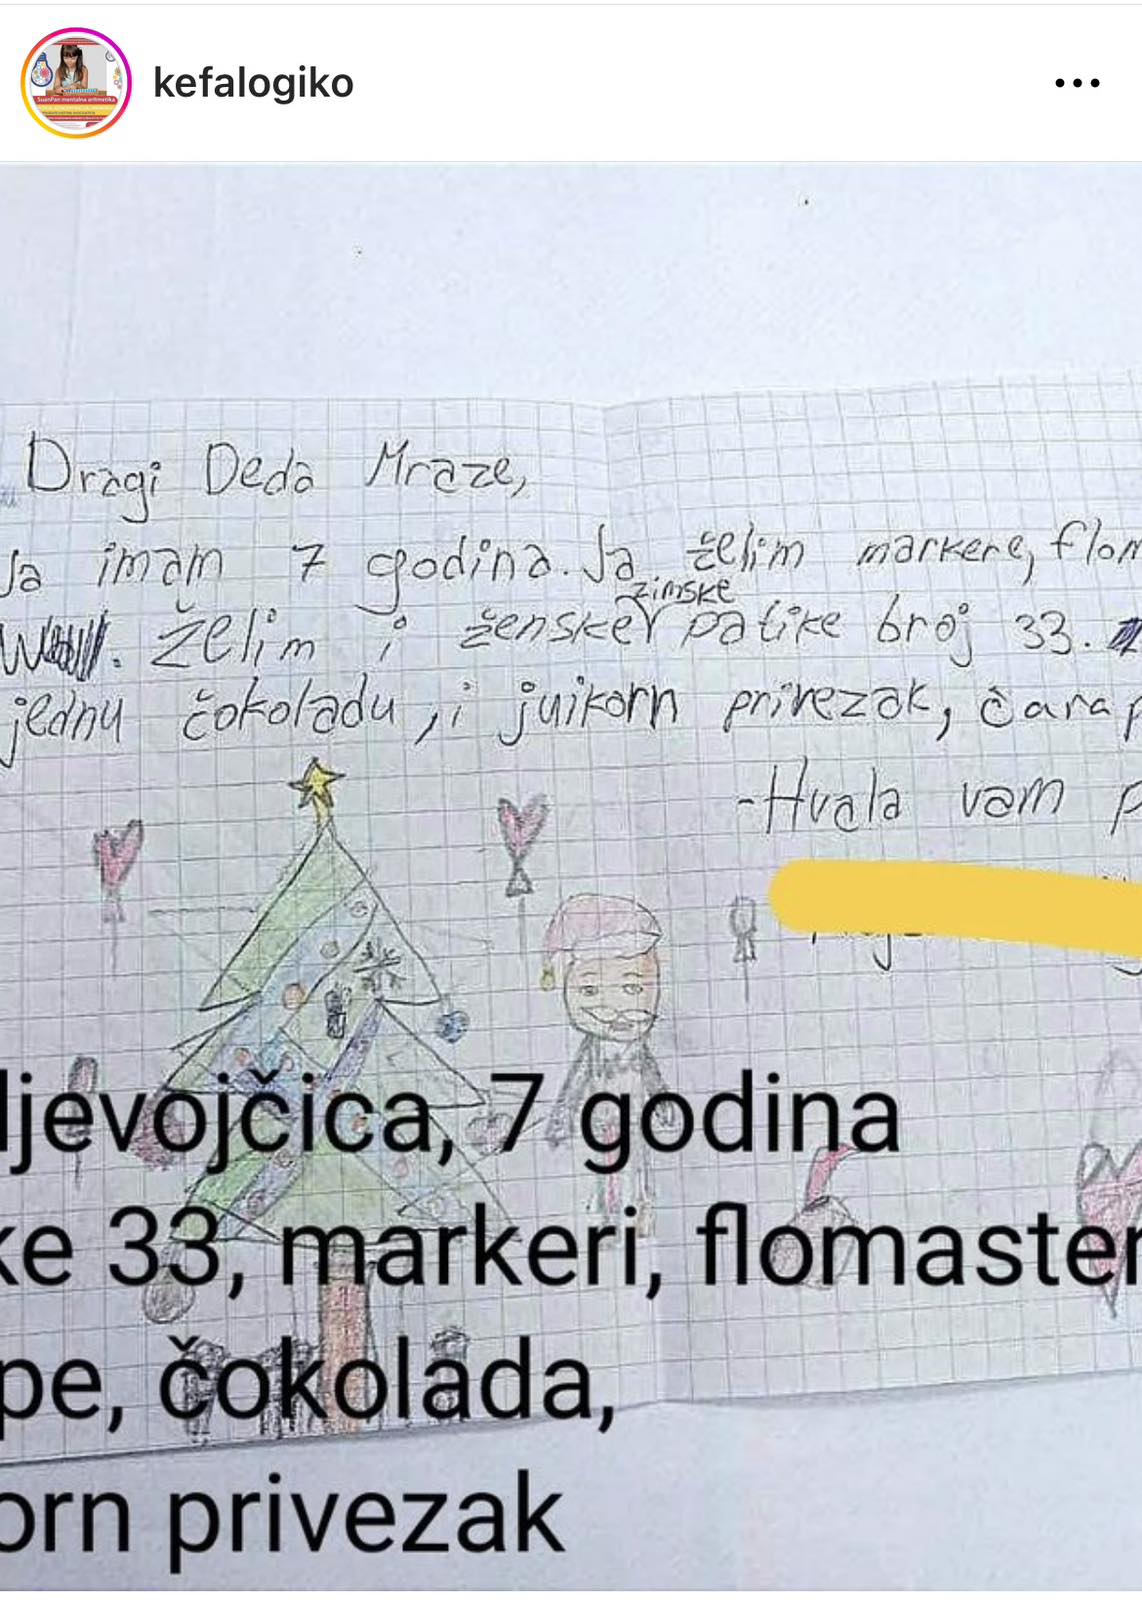 kefalogiko
SuanPan mentalna aritmetika
Dragi Deda Mraze,
Ja imam 7 godina. Ja želim markere, flom
zimske
Želim i ženske patike broj 33.
jednu čokoladu, i juikorn privezak, čarap
-Hvala vam p
djevojčica, 7 godina
ke 33, markeri, flomaster
pe, čokolada,
orn privezak